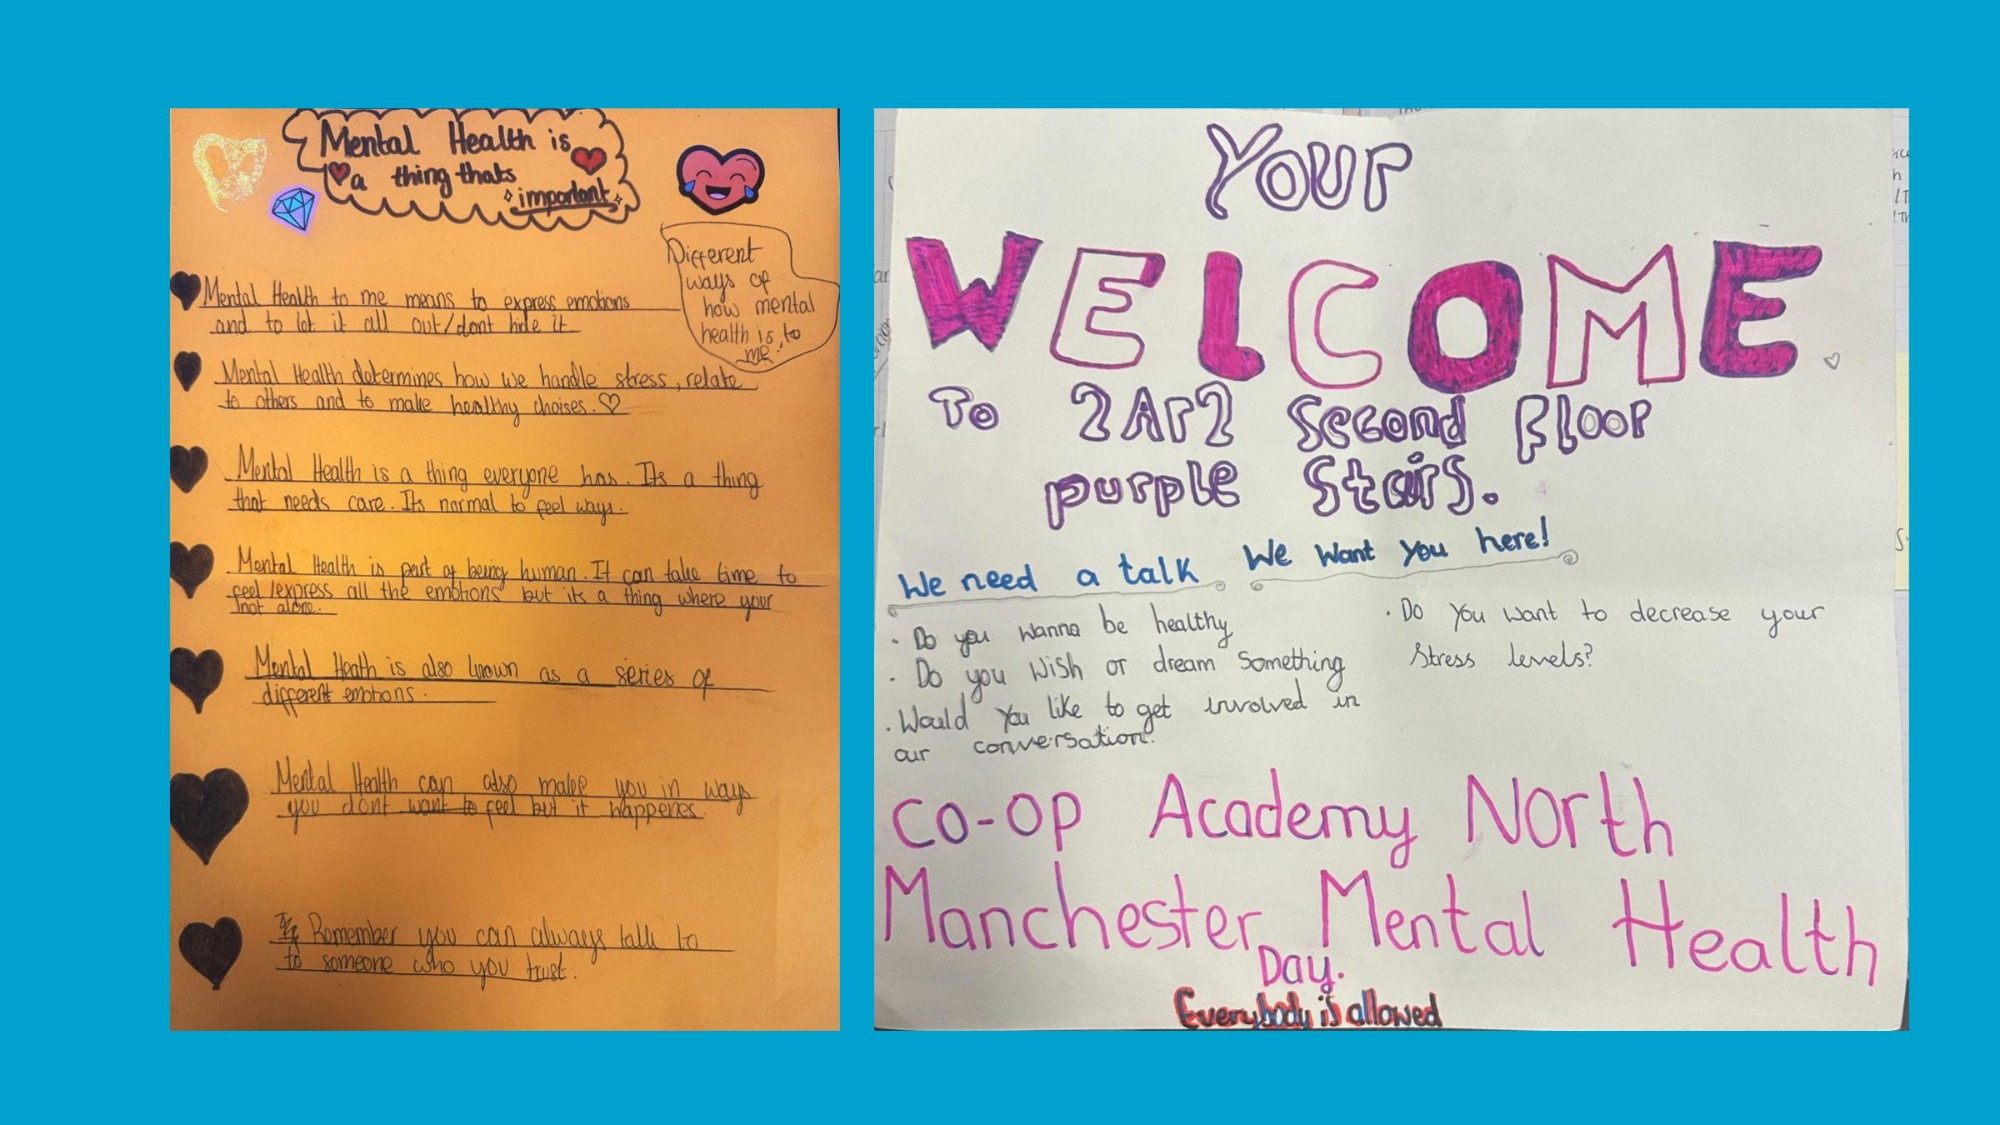 Mental Health is
a thing thats
important
Different
ways of
how mental
health is to
me.
Mental Health to me means to express emotions
and to let it all out/dont hide it
Mental Health determines how we handle stress, relate
to others and to make healthy choises.
Mental Health is a thing everyone has. Its a thing
that needs care. Its normal to feel ways.
Mental Health is part of being human. It can take time to
feel/express all the emotions but its a thing where your
not alone.
Mental Heath is also known as a series of
different emotions.
Mental Health can also make you in ways
you dont want to feel but it happenes.
Remember you can always talk to
to someone who you trust.
Your
WELCOME
To 2Ar2 Second floor
purple Stairs.
We need a talk We want you here!
· Do you wanna be healthy
· Do you wish or dream something
· Would you like to get involved in
our conversation.
· Do you want to decrease your
stress levels?
CO-OP Academy North
Manchester Mental Health
Day.
Everybody is allowed